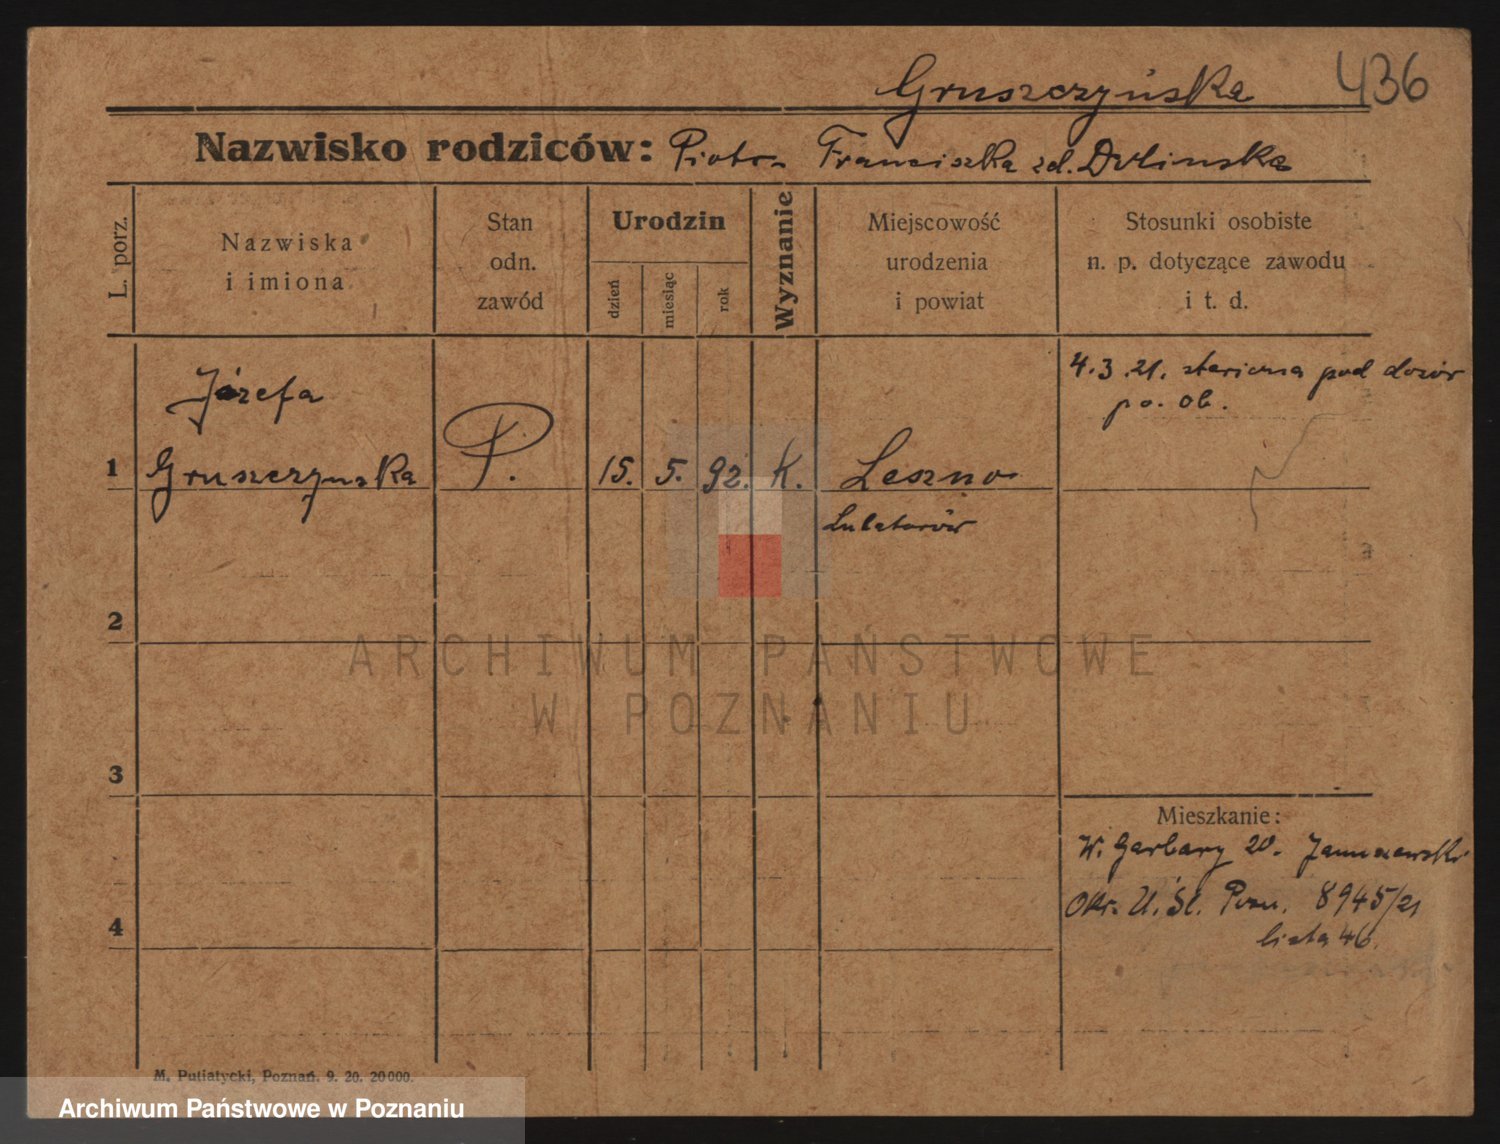 Gruszczyńska 436
Nazwisko rodziców: Piotr Franciszka zd. Dolinska
L. porz.
Nazwiska
i imiona
Stan
odn.
zawód
Urodzin
dzień
miesiąc
rok
Wyznanie
Miejscowość
urodzenia
i powiat
Stosunki osobiste
n. p. dotyczące zawodu
i t. d.
4.3.21. pod dozór
po. ob.
Józefa
1 Gruszczynska P. 15. 5. 92. K. Leszno
2
3
4
Mieszkanie:
W. Garbary 20. Januszewski
Okr. U. Śl. Pozn. 8945/21
lista 46.
M. Putiatycki, Poznań. 9. 20. 20000.
ARCHIWUM PAŃSTWOWE
W POZNANIU
Archiwum Państwowe w Poznaniu